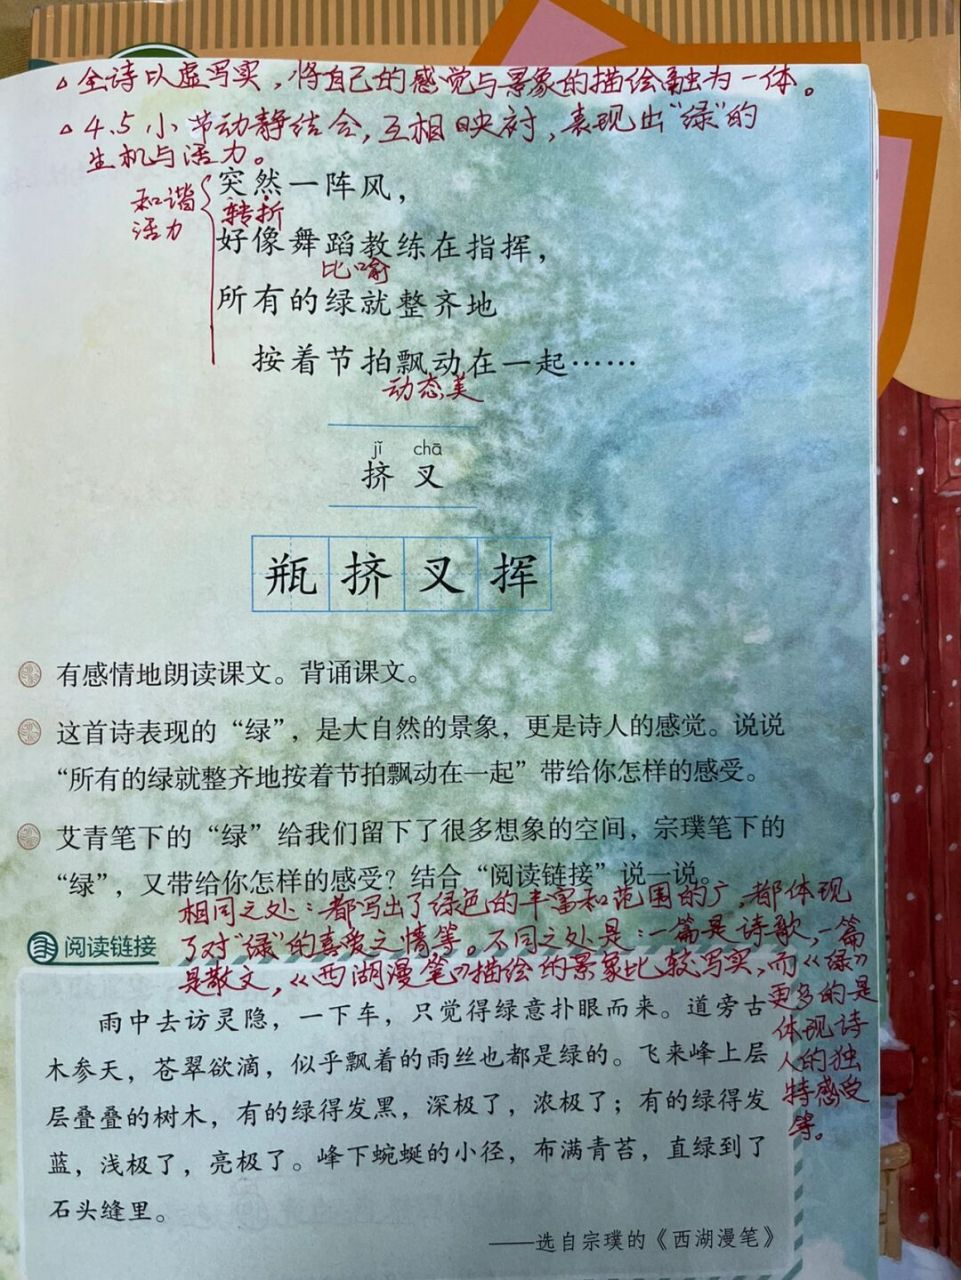 △全诗以虚写实，将自己的感觉与景象的描绘融为一体。
△4.5小节动静结合，互相映衬，表现出“绿”的
生机与活力。
和谐
活力
突然一阵风，
转折
好像舞蹈教练在指挥，
比喻
所有的绿就整齐地
按着节拍飘动在一起……
动态美
jǐ chā
挤 叉
瓶挤叉挥
有感情地朗读课文。背诵课文。
这首诗表现的“绿”，是大自然的景象，更是诗人的感觉。说说
“所有的绿就整齐地按着节拍飘动在一起”带给你怎样的感受。
艾青笔下的“绿”给我们留下了很多想象的空间，宗璞笔下的
“绿”，又带给你怎样的感受？结合“阅读链接”说一说。
相同之处：都写出了绿色的丰富和范围的广，都体现
了对“绿”的喜爱之情等。不同之处是：一篇是诗歌，一篇
是散文，《西湖漫笔》描绘的景象比较写实，而《绿》
更多的是
体现诗
人的独
特感受
等。
阅读链接
雨中去访灵隐，一下车，只觉得绿意扑眼而来。道旁古
木参天，苍翠欲滴，似乎飘着的雨丝也都是绿的。飞来峰上层
层叠叠的树木，有的绿得发黑，深极了，浓极了；有的绿得发
蓝，浅极了，亮极了。峰下蜿蜒的小径，布满青苔，直绿到了
石头缝里。
——选自宗璞的《西湖漫笔》